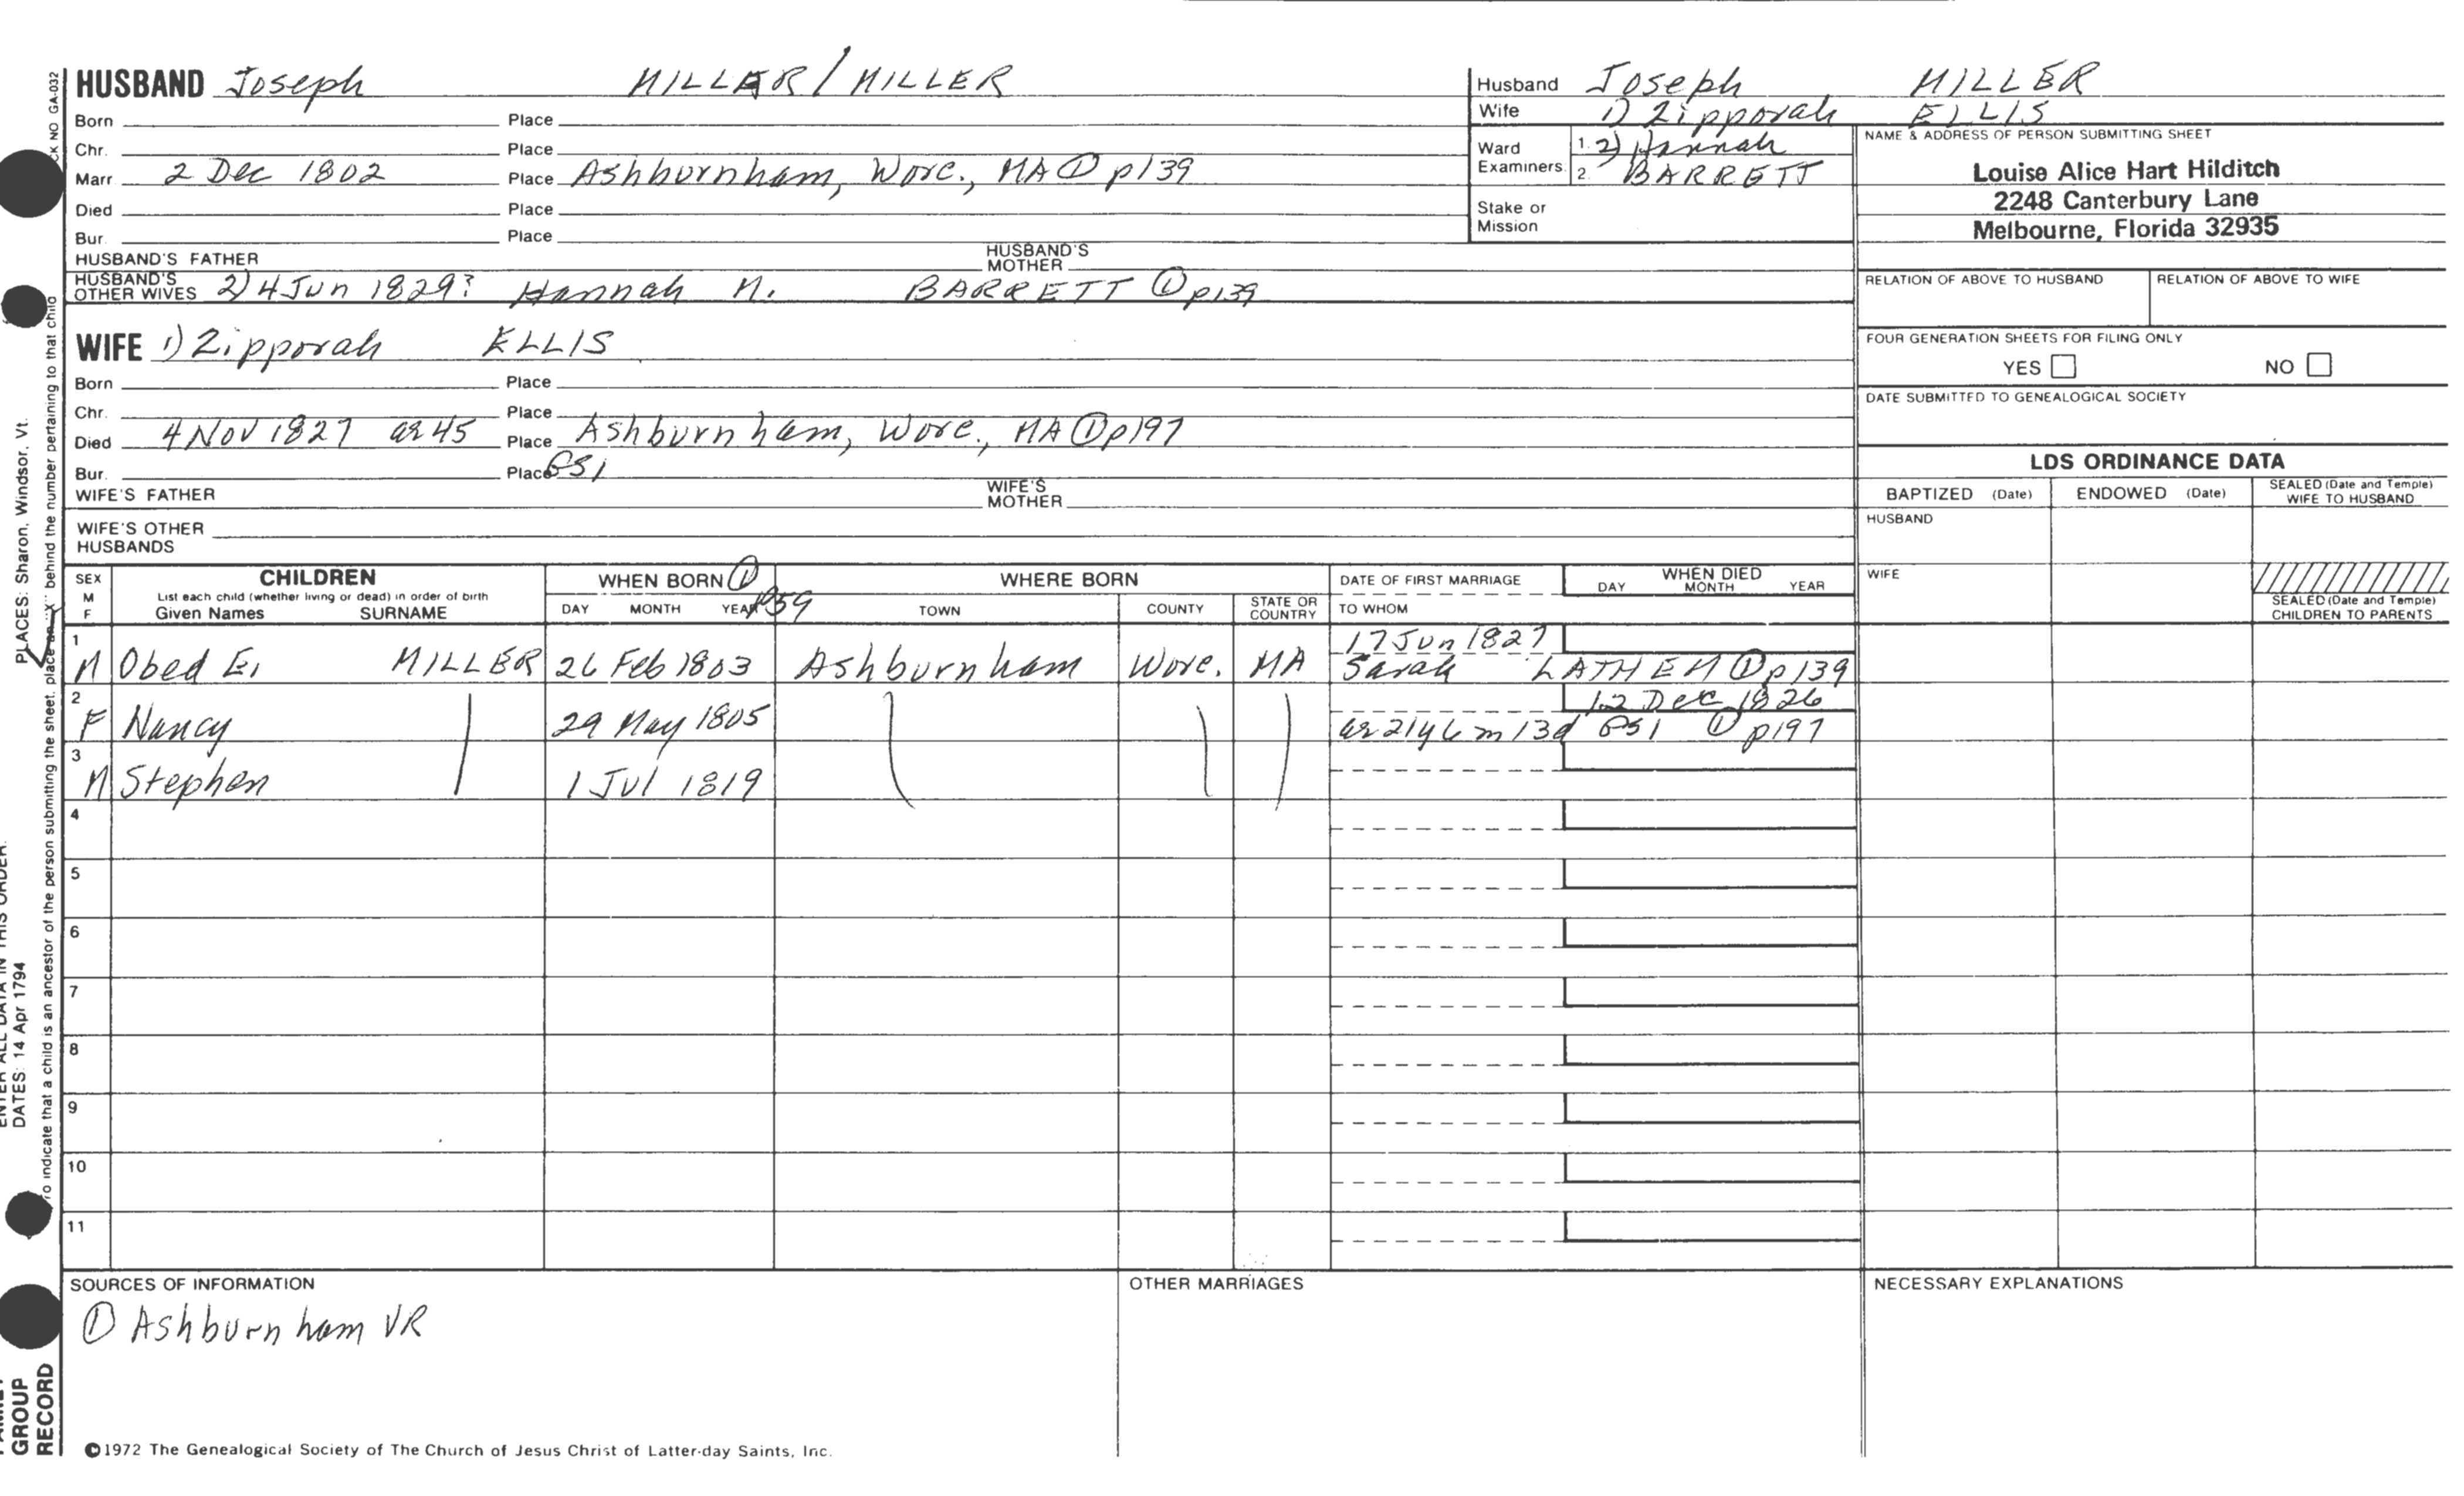 HUSBAND Joseph MILLAR / MILLER
Born Place
Chr. Place
Marr 2 Dec 1802 Place Ashburnham, Worc., MA ① p139
Died Place
Bur. Place
HUSBAND'S FATHER HUSBAND'S MOTHER
HUSBAND'S OTHER WIVES 2) 4 Jun 1829? Hannah M. BARRETT ① p139
WIFE 1) Zipporah ELLIS
Born Place
Chr. Place
Died 4 Nov 1827 ae 45 Place Ashburnham, Worc., MA ① p197
Bur. Place GS1
WIFE'S FATHER WIFE'S MOTHER
WIFE'S OTHER HUSBANDS
Husband Joseph MILLER
Wife 1) Zipporah ELLIS
Ward Examiners 1. 2) Hannah
2. BARRETT
Stake or Mission
NAME & ADDRESS OF PERSON SUBMITTING SHEET
Louise Alice Hart Hilditch
2248 Canterbury Lane
Melbourne, Florida 32935
RELATION OF ABOVE TO HUSBAND RELATION OF ABOVE TO WIFE
FOUR GENERATION SHEETS FOR FILING ONLY
YES NO
DATE SUBMITTED TO GENEALOGICAL SOCIETY
LDS ORDINANCE DATA
BAPTIZED (Date) ENDOWED (Date) SEALED (Date and Temple) WIFE TO HUSBAND
HUSBAND
WIFE
SEALED (Date and Temple) CHILDREN TO PARENTS
SEX M F CHILDREN WHEN BORN ① p59 WHERE BORN DATE OF FIRST MARRIAGE WHEN DIED
List each child (whether living or dead) in order of birth
Given Names SURNAME DAY MONTH YEAR TOWN COUNTY STATE OR COUNTRY TO WHOM DAY MONTH YEAR
1 17 Jun 1827
M Obed E. MILLER 26 Feb 1803 Ashburnham Worc. MA Sarah LATHEM ① p139
2 12 Dec 1826
F Nancy 29 May 1805 ae 21y 6m 13d GS1 ① p197
3
M Stephen 1 Jul 1819
4
5
6
7
8
9
10
11
SOURCES OF INFORMATION OTHER MARRIAGES NECESSARY EXPLANATIONS
① Ashburnham VR
©1972 The Genealogical Society of The Church of Jesus Christ of Latter-day Saints, Inc.
GROUP
RECORD
NO GA-032
PLACES: Sharon, Windsor, Vt.
DATES: 14 Apr 1794
ENTER ALL DATA IN THIS ORDER:
To indicate that a child is an ancestor of the person submitting the sheet, place an "X" behind the number pertaining to that child